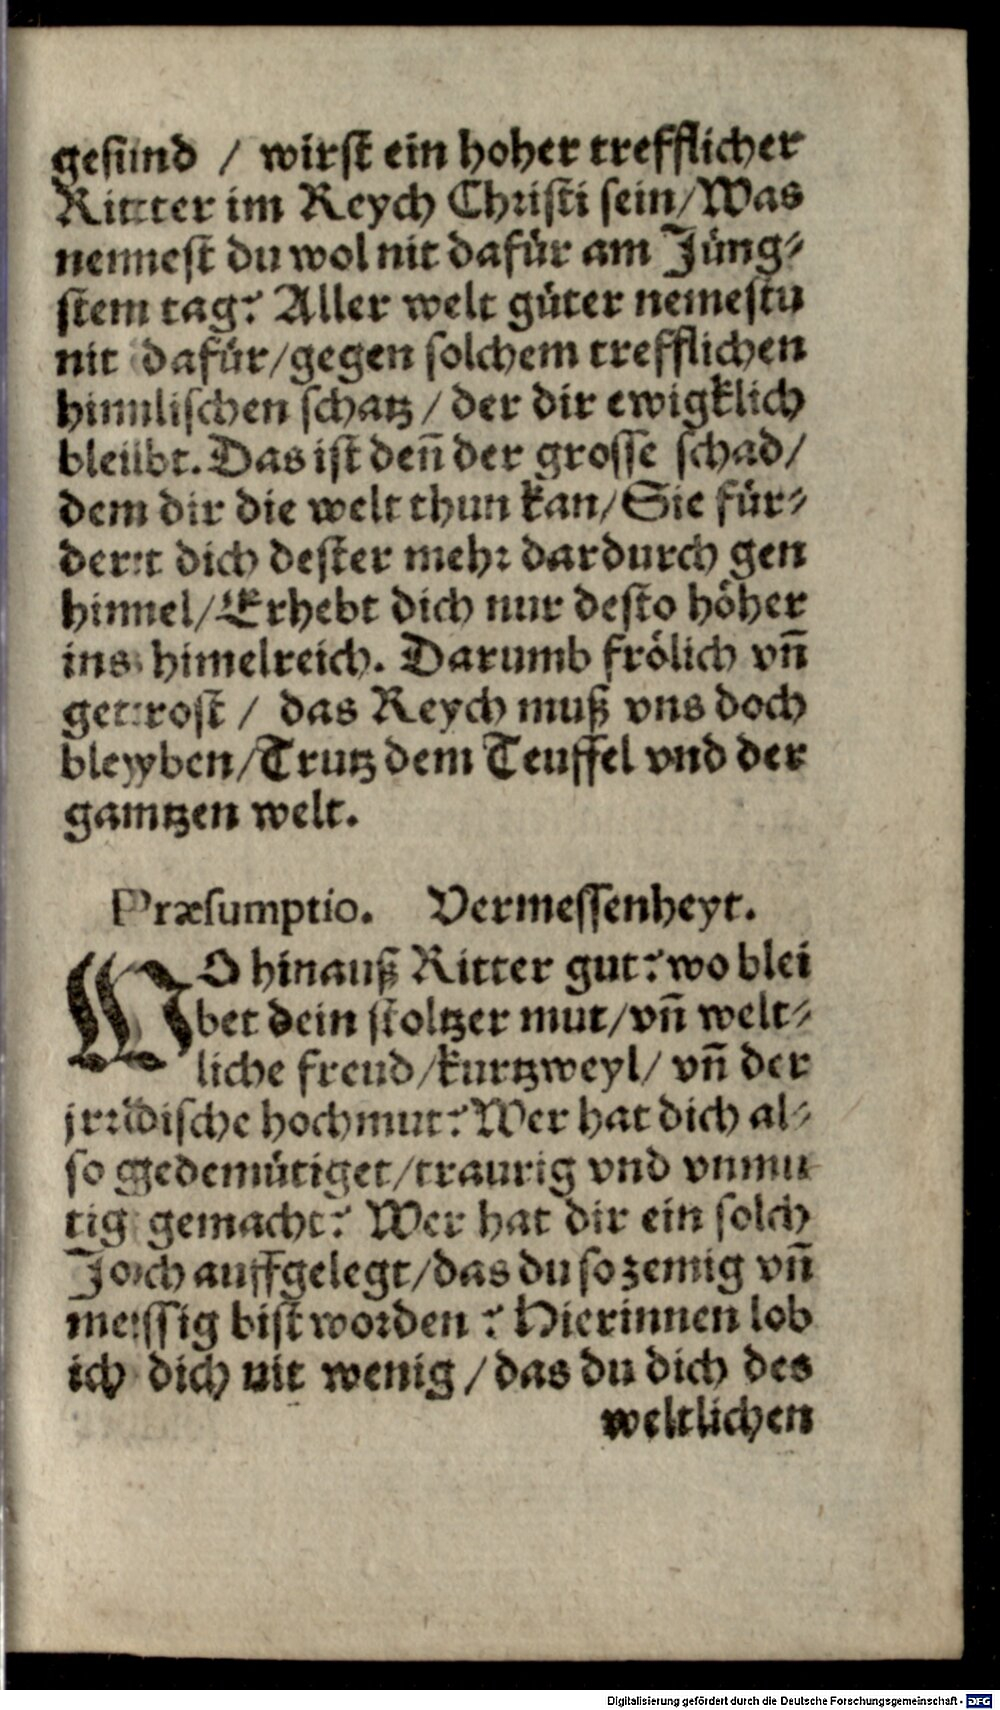 gesund / wirst ein hoher trefflicher
Ritter im Reych Christi sein/Was
nemest du wol nit dafür am Jüng⸗
stem tag? Aller welt güter nemestu
nit dafür/gegen solchem trefflichen
himlischen schatz / der dir ewigklich
bleibt. Das ist den̄ der grosse schad/
dem dir die welt thun kan/Sie für⸗
dert dich dester mehr dardurch gen
himel/Erhebt dich nur desto höher
ins himelreich. Darumb frölich vn̄
getrost / das Reych muß vns doch
bleyben/Trutz dem Teuffel vnd der
gantzen welt.
Præsumptio. Vermessenheyt.
WO hinauß Ritter gut? wo blei
bet dein stoltzer mut/vn̄ welt⸗
liche freud/kurtzweyl/ vn̄ der
jrrdische hochmut? Wer hat dich al⸗
so gedemütiget/traurig vnd vnmu
tig gemacht? Wer hat dir ein solch
Joch auffgelegt/das du so zemig vn̄
messig bist worden? Hierinnen lob
ich dich nit wenig / das du dich des
weltlichen
Digitalisierung gefördert durch die Deutsche Forschungsgemeinschaft - DFG